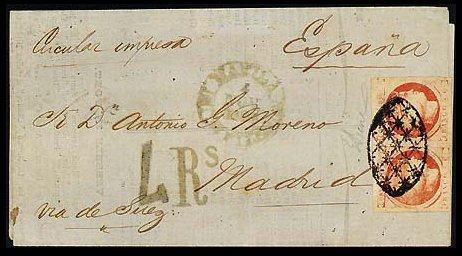 Circular impresa
España
MANILA
Sr Dn Antonio G. Moreno
4 Rs
Madrid
via de Suez